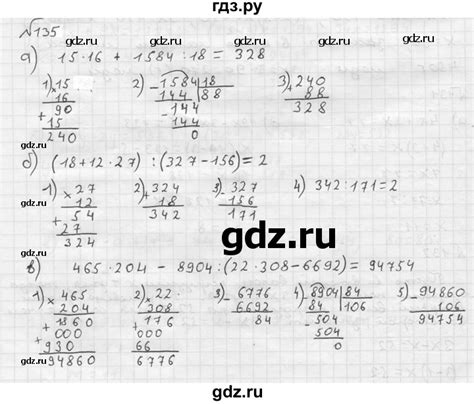 гдз.ру
№135
gdz.ru gdz.ru gdz.ru
а) 15·16 + 1584:18 = 328
1) 15 2) 1584|18 3) 240
× 16 - 144 |88 + 88
90 144 328
+ 15 - 144
240 0
gdz.ru gdz.ru
б) (18+12·27) : (327-156) = 2
1) × 27 2) + 324 3) - 327 4) 342:171=2
12 18 156
+ 54 342 171
27
324
gdz.ru
gdz.ru gdz.ru
в) 465·204 - 8904:(22·308-6692) = 94754
1) × 465 2) × 22 3) - 6776 4) - 8904|84 5) - 94860
204 308 6692 84 |106 106
+ 1860 + 176 84 - 504 94754
000 000 504
930 66 0
94860 6776
gdz.ru gdz.ru gdz.ru
gdz.ru